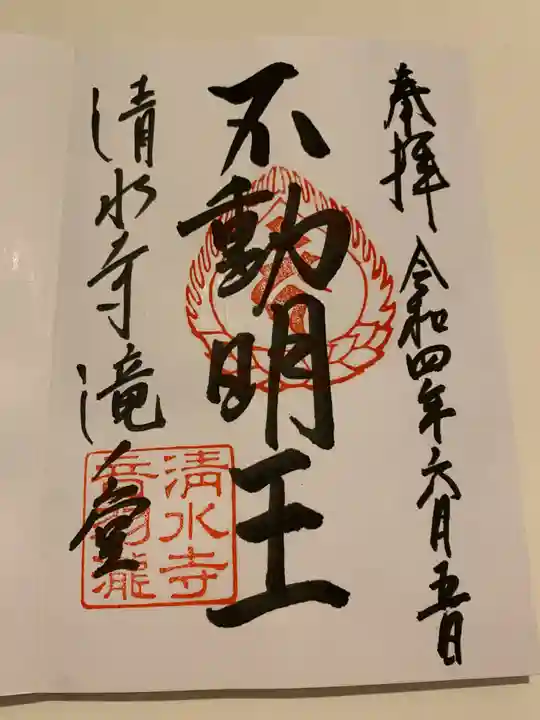 奉拝
令和四年六月五日
不動明王
清水寺滝ノ堂
清水寺
音羽瀧